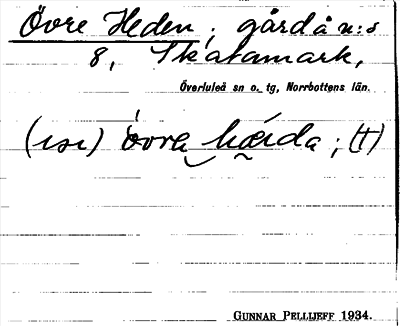 Övre Heden; gård å n:s
8, Skatamark,
Överluleå sn o. tg, Norrbottens län.
(ısı) övrə hæ̀ida; (†)
GUNNAR PELLIJEFF 1934.